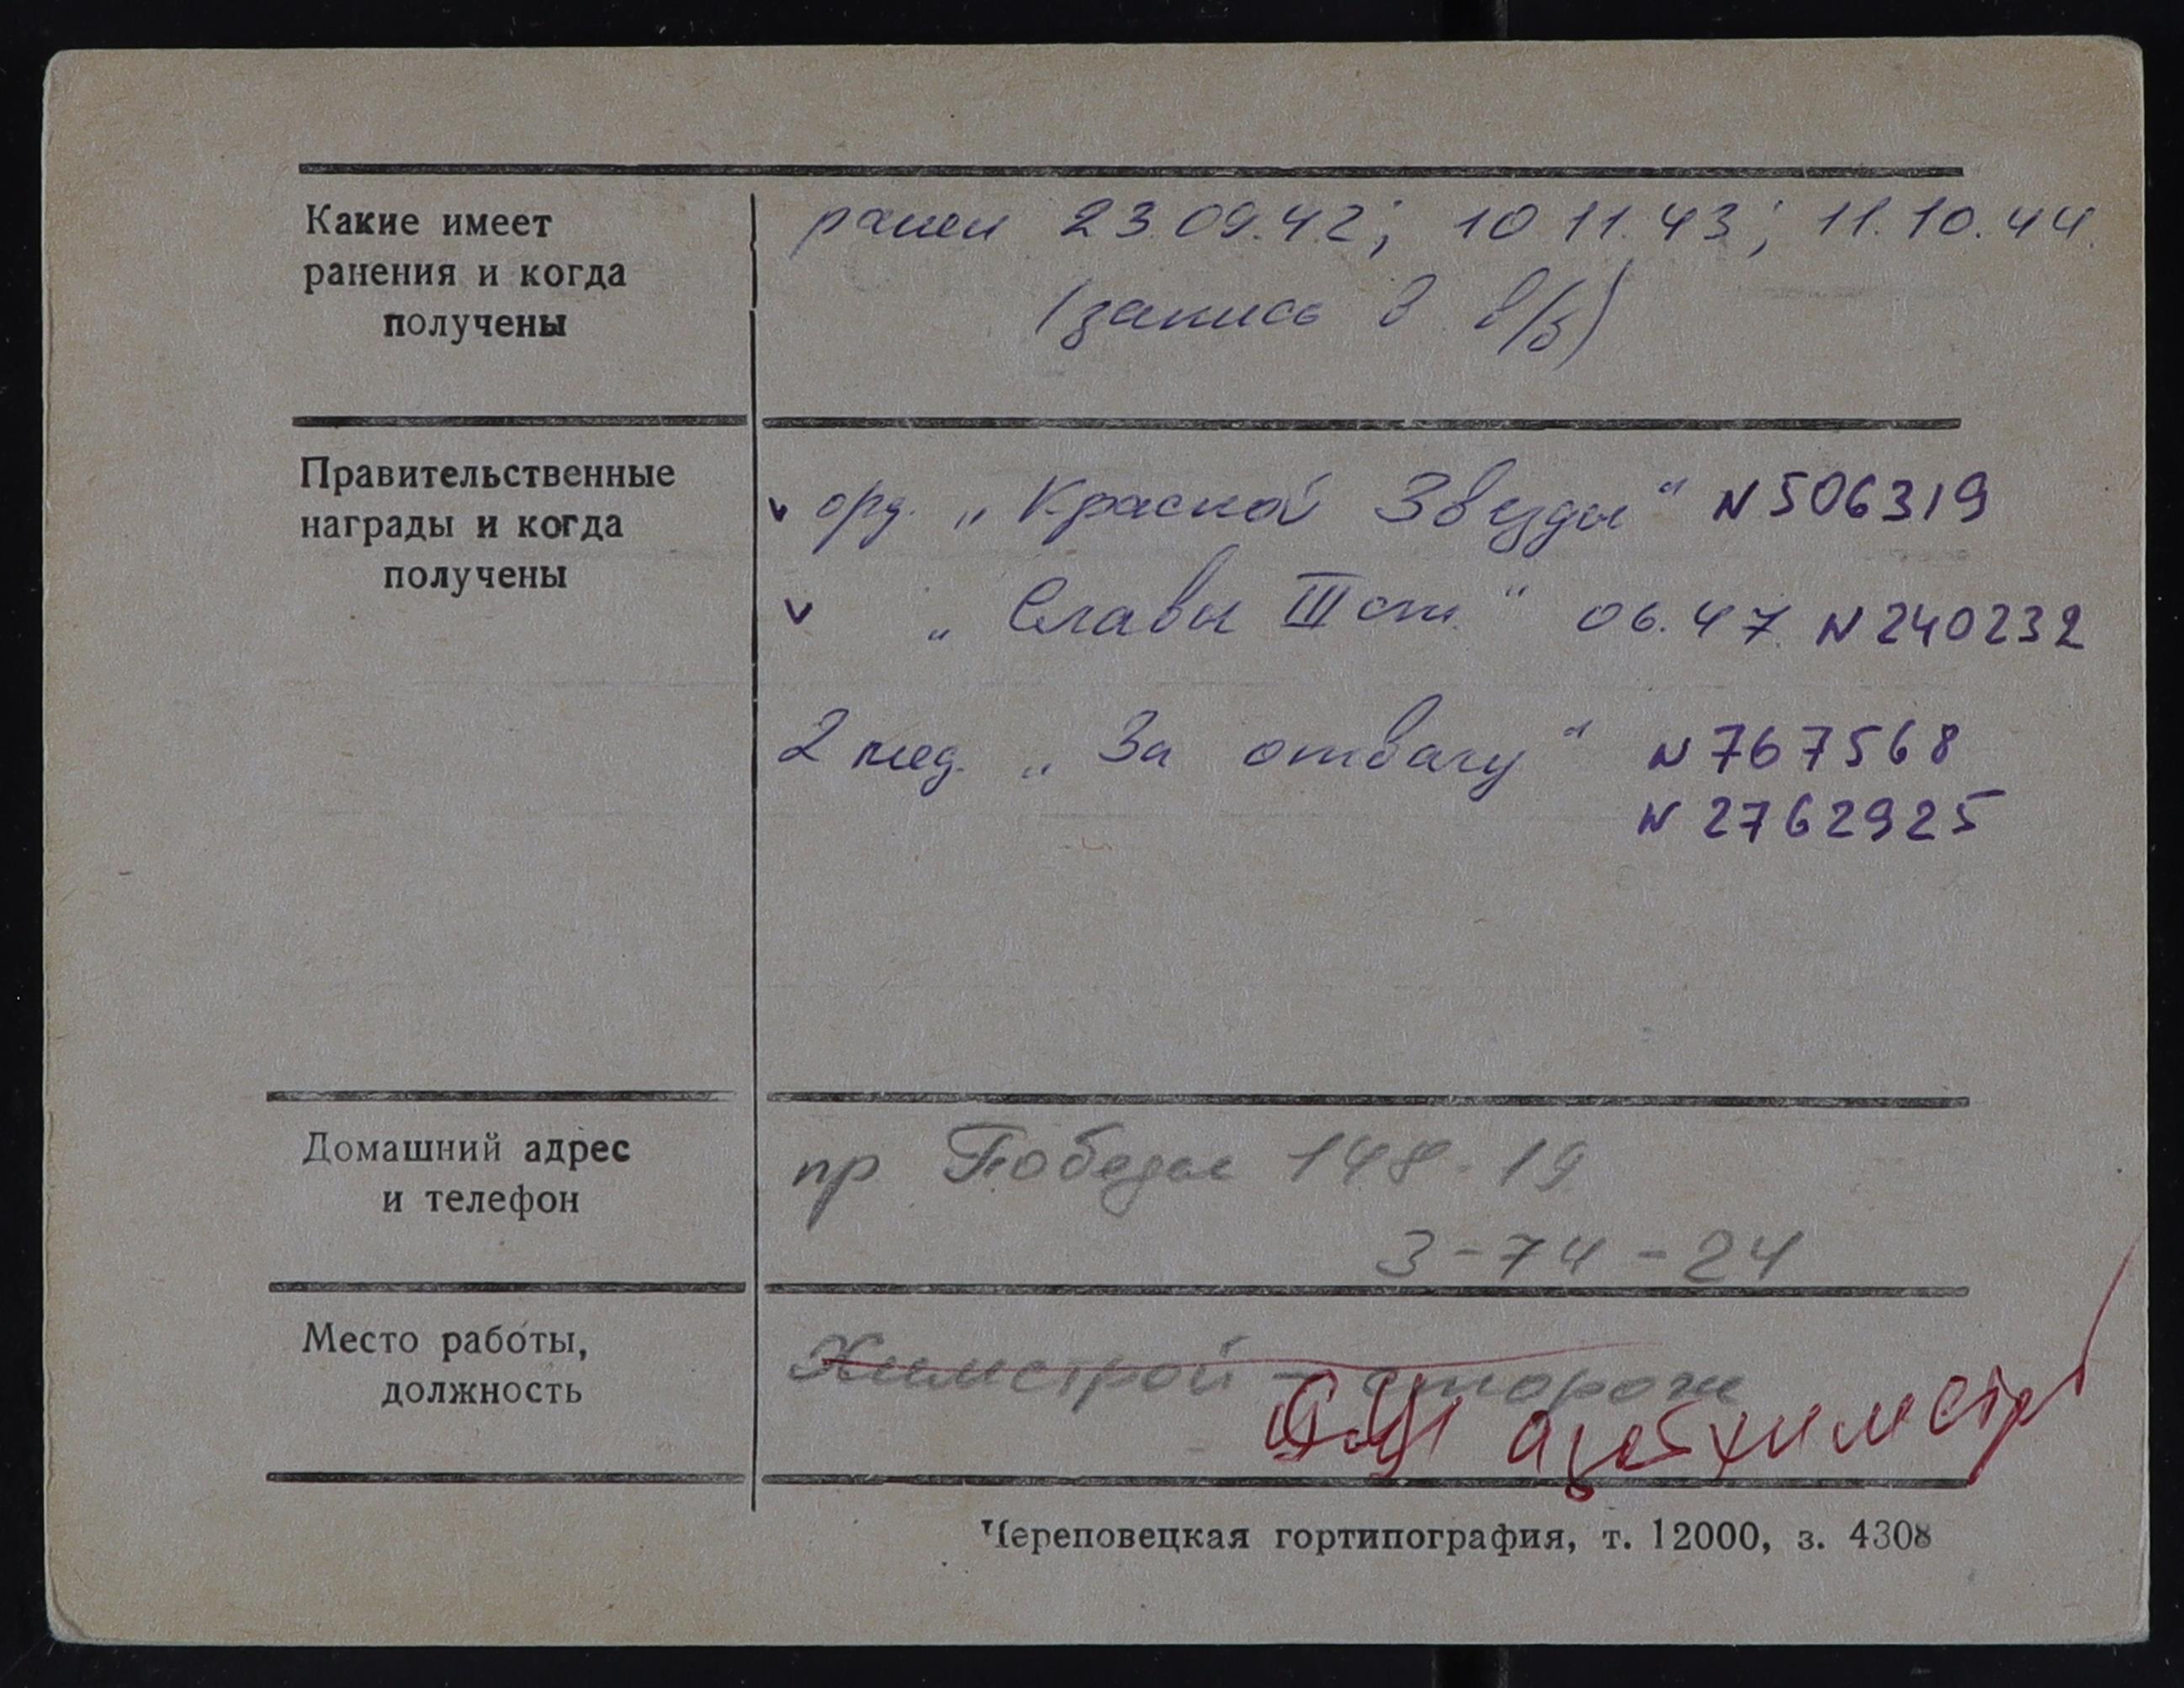 Какие имеет
ранения и когда
получены
ранен 23.09.42; 10.11.43; 11.10.44.
(запись в в/б)
Правительственные
награды и когда
получены
v орд. „Красной Звезды“ N506319
v „ Славы III ст.“ 06.47 N240232
2 мед. „За отвагу“ N767568
N2762925
Домашний адрес
и телефон
пр Победы 148-19
3-74-24
Место работы,
должность
Химстрой - сторож
азотхимстр
Череповецкая гортипография, т. 12000, з. 4308